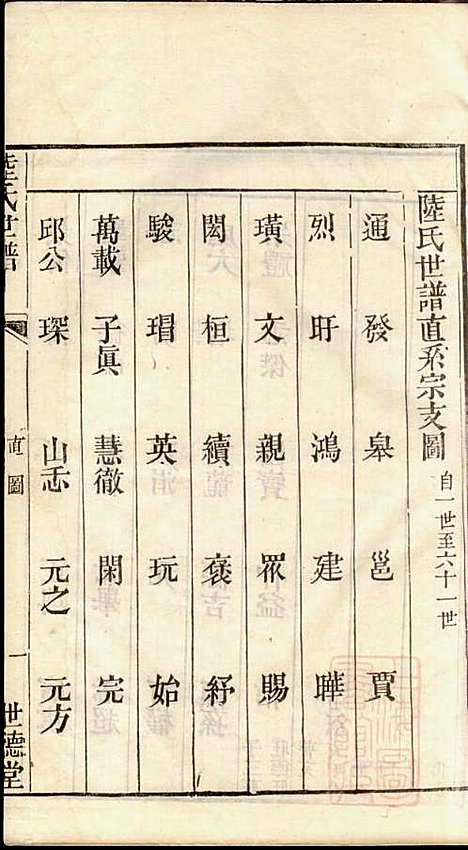 陸氏世譜直系宗支圖 自一世至六十一世
通 發 皋 邕 賈
烈 盱 鴻 建 曄
璜 文 親 眾 賜
閎 桓 續 褒 紆
駿 瑁 英 玩 始
萬載 子眞 慧徹 閑 完
邱公 琛 山忎 元之 元方
陸氏世譜 直圖 一 世德堂